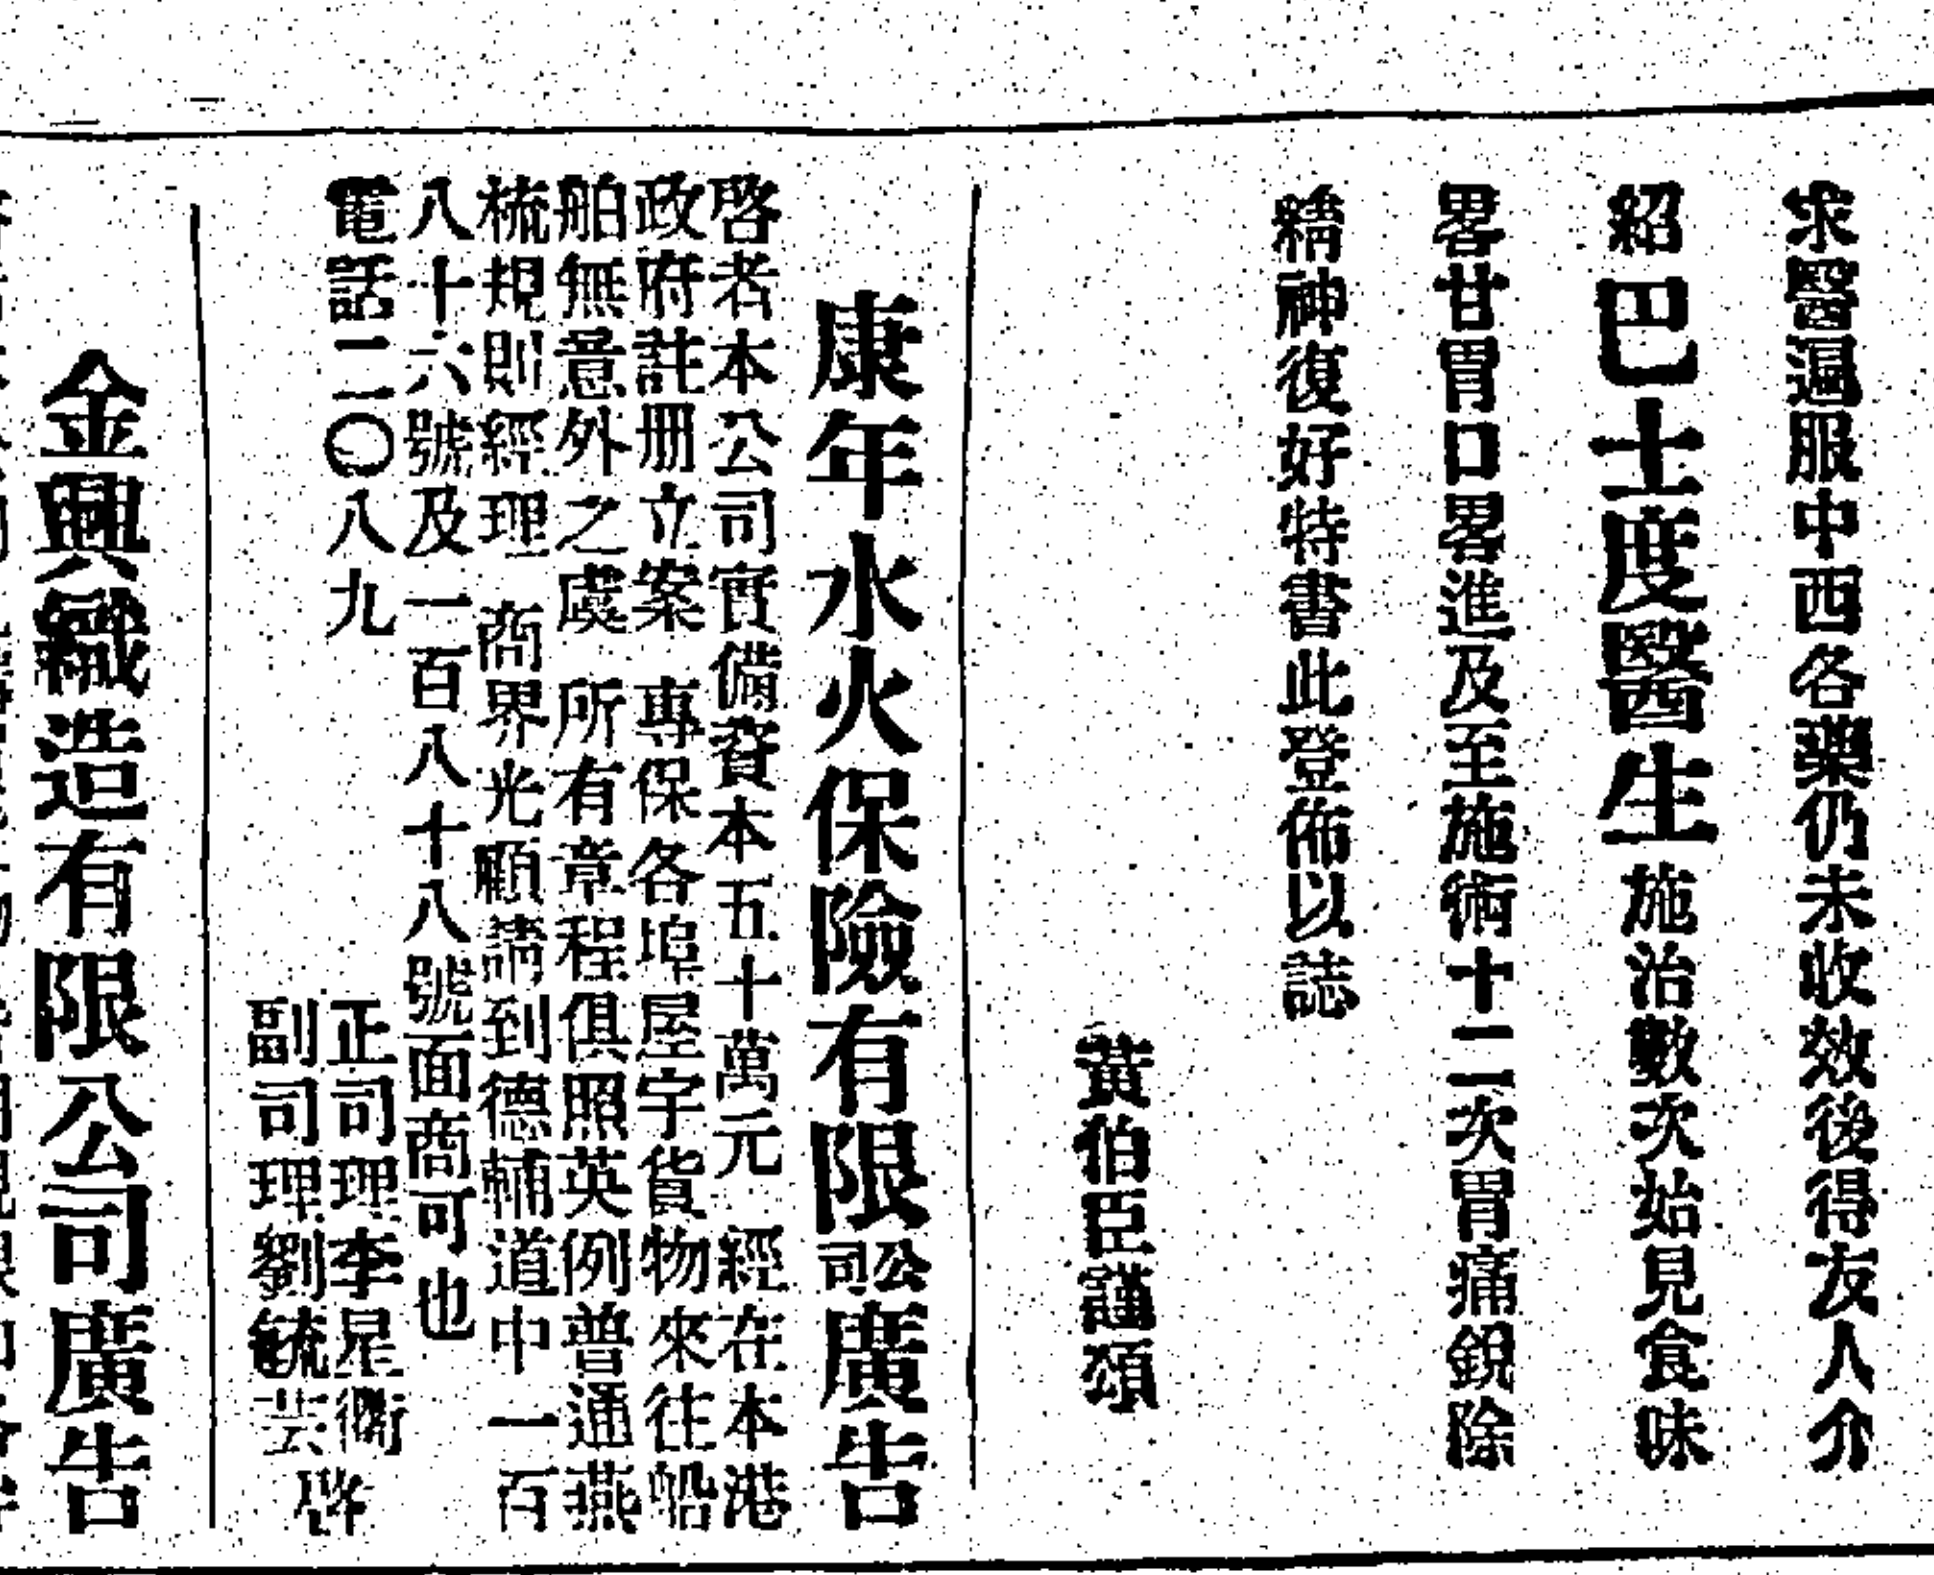 求醫遍服中西各藥仍未收效後得友人介
紹巴士度醫生施治數次始見食味
畧甘胃口畧進及至施術十二次胃痛銳除
精神復好特書此登佈以誌
黃伯臣謹頌
康年水火保險有限公司廣告
啓者本公司實備資本五十萬元 經在本港
政府註册立案 專保各埠屋宇貨物來往船
舶無意外之虞 所有章程俱照英例普通燕
梳規則經理 商界光顧請到德輔道中一百
八十六號及一百八十八號面商可也
電話二二〇八九
正司理李星衢
副司理劉毓芸 啓
金興織造有限公司廣告